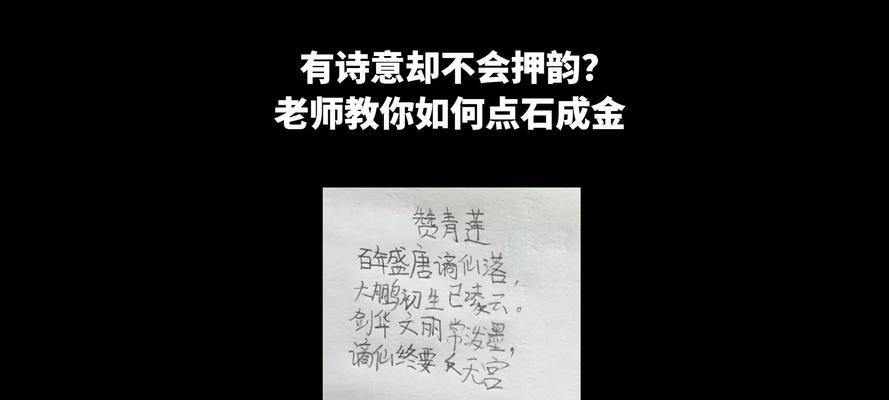 有诗意却不会押韵？
老师教你如何点石成金
赞青莲
百年盛唐谪仙落，
大鹏初生已凌云。
剑华文丽常泼墨，
谪仙终要宫